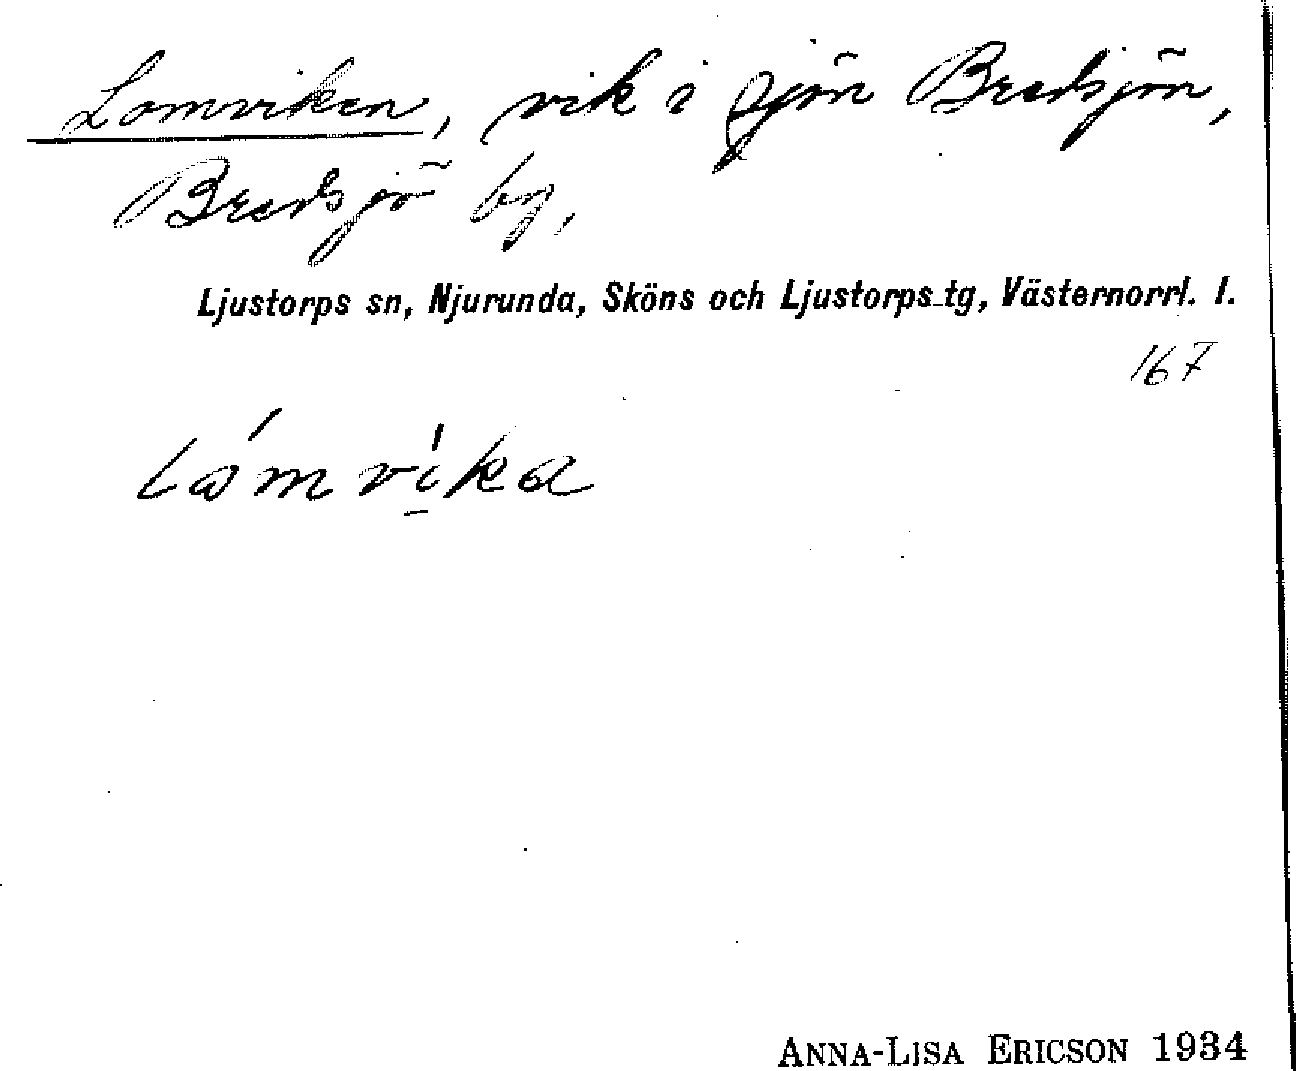 Lomviken, vik i sjön Bredsjön,
Bredsjö by,
Ljustorps sn, Njurunda, Sköns och Ljustorps tg, Västernorrl. l.
167
Lòmvíka
ANNA-LISA ERICSON 1934